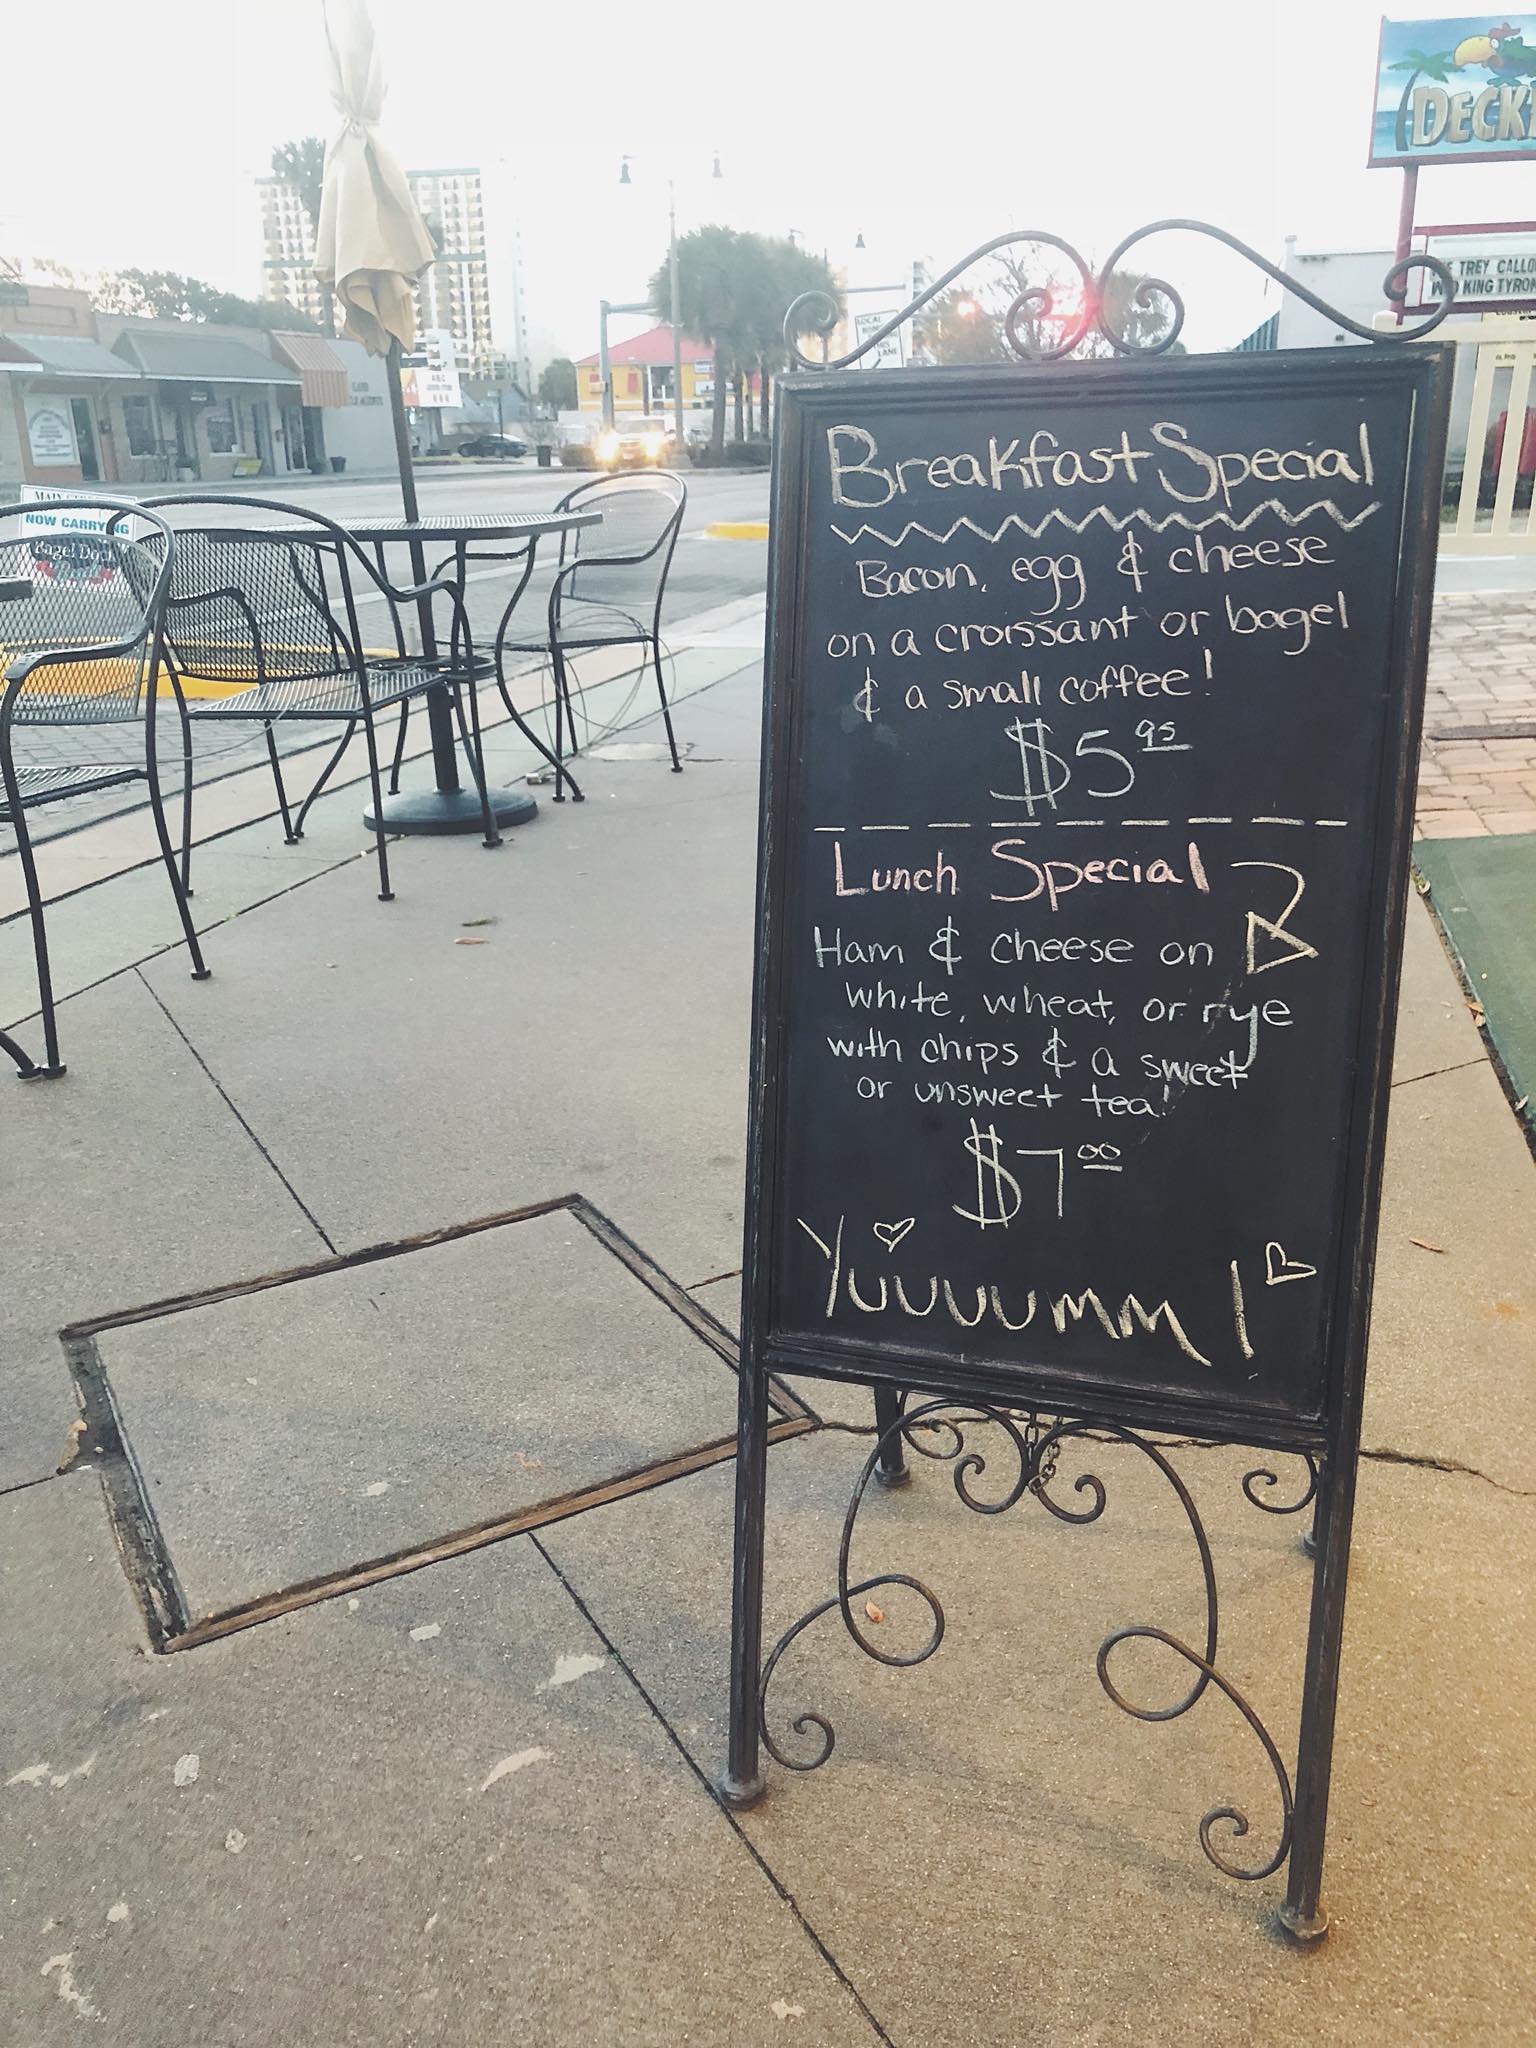 DECK
TREY CALLO
KING TYRON
LOCAL
LANE
ABC
NOW CARRYING
Bagel
Breakfast Special
Bacon, egg & cheese
on a croissant or bagel
& a small coffee!
$5 95
Lunch Special
Ham & cheese on
white, wheat, or rye
with chips & a sweet
or unsweet tea!
$7 00
Yuuuuumm!